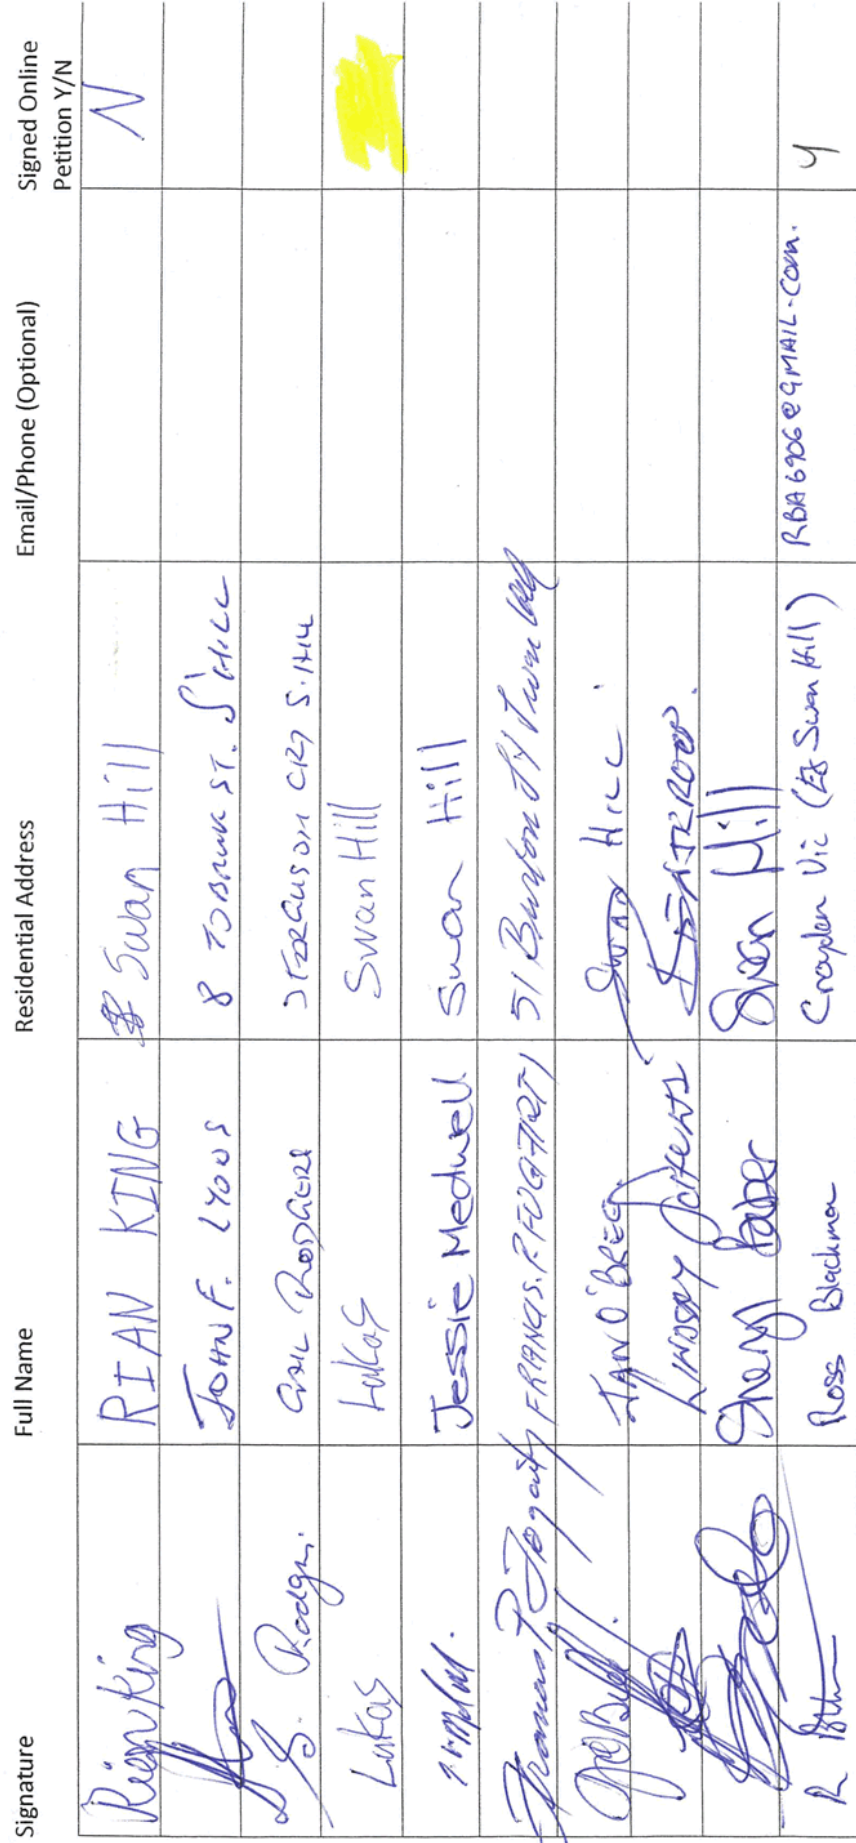 Signature Full Name Residential Address Email/Phone (Optional) Signed Online Petition Y/N
Rian King RIAN KING Swan Hill N
JOHN F. LYONS 8 TOBRUK ST. S'HILL
G. Rodgers GAIL RODGERS FERGUSON CRT S.HILL
Lukas Lukas Swan Hill
Jessie Medwell Swan Hill
Francis P Fogarty FRANCIS. P FOGARTY 51 Burton
IAN O'BREE SWAN HILL.
LINDSAY
Sheryl Swan Hill
R Ross Blackman Croydon Vic (Ex Swan Hill) RBA6906@GMAIL.COM. Y